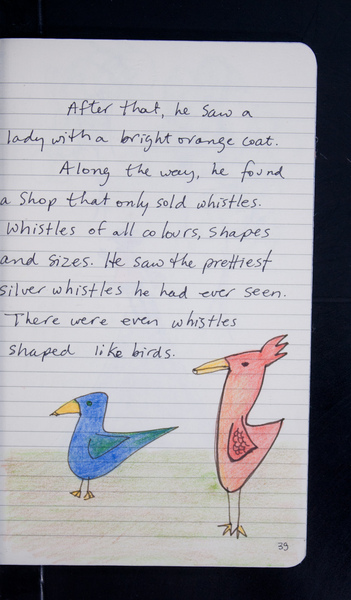 After that, he saw a
lady with a bright orange coat.
Along the way, he found
a shop that only sold whistles.
Whistles of all colours, shapes
and sizes. He saw the prettiest
silver whistles he had ever seen.
There were even whistles
shaped like birds.
39